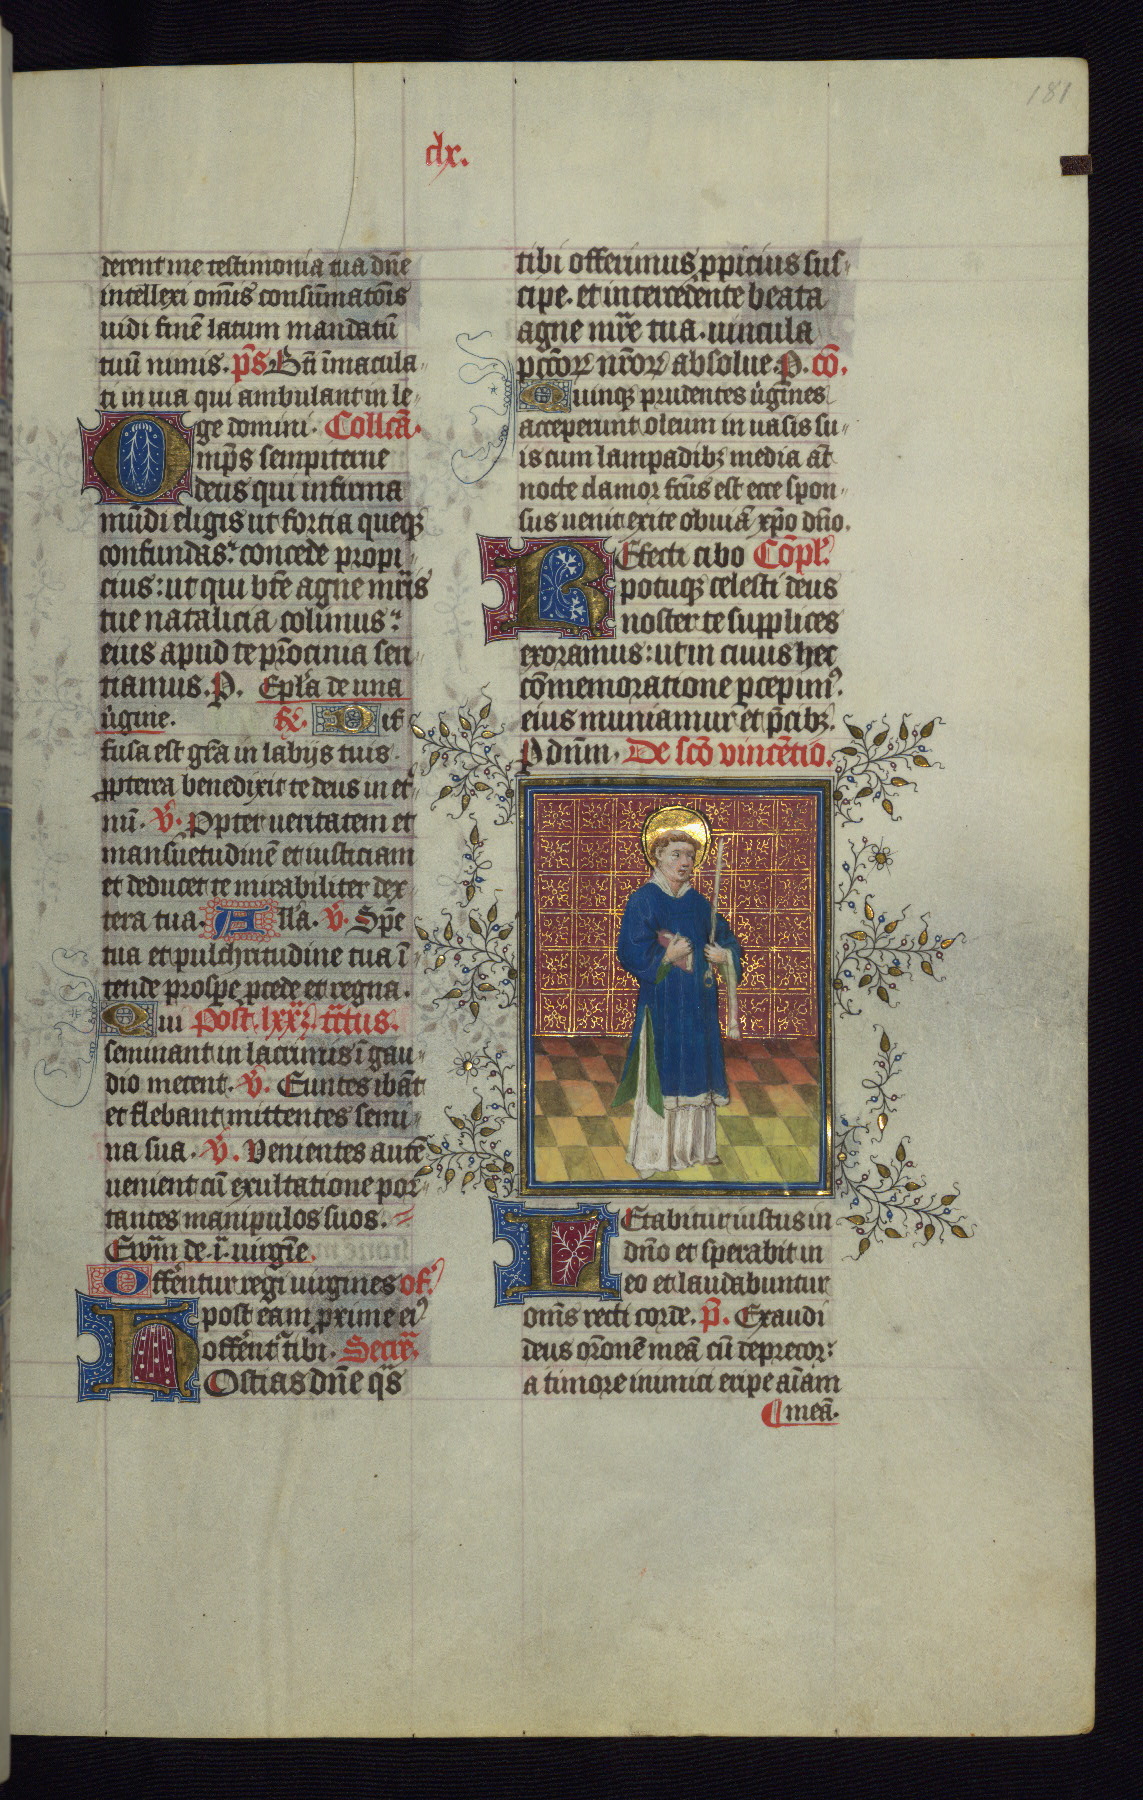 181
clx.
derent me testimonia tua dn̄e
intellexi om̄is consūmatōis
uidi finē latum mandatū
tuū nimis. p̄s. Bt̄i īmacula-
ti in uia qui ambulant in le-
ge domini. Collc̄a.
Omp̄s sempiterne
deus qui infirma
mūdi eligis ut fortia queqꝫ
confundas: concede propi-
cius: ut qui bt̄e agne mr̄is
tue natalicia colimus:
eius apud te pr̄ocinia sen-
tiamus. P. Epl̄a de una
ūgine. R̄. Dif
fusa est gr̄a in labijs tuis
ꝓpterea benedixit te deus in et̄
nū. V̄. Propter ueritatem et
mansuetudinē et iusticiam
et deducet te mirabiliter dex
tera tua. All̄a. V̄. Spē
tua et pulchritudine tua ī
tende prospe ꝓcede et regna.
Qui Post lxx. tc̄tus.
seminant in lacrimis ī gau-
dio metent. V̄. Euntes ibāt
et flebant mittentes semi-
na sua. V̄. Venientes autē
uenient cū exultatione por-
tantes manipulos suos.
Ewm̄ de .i. uirgīe.
Offerentur regi uirgines of.
post eam proxime ei9
offerēt̄ tibi. Secret̄.
Hostias dn̄e qs̄
tibi offerimus ꝓpicius sus-
cipe. et intercedente beata
agne mr̄e tua. uincula
pctōꝝ nr̄oꝝ absolue. P. cō.
Quinqꝫ prudentes ūgines
acceperunt oleum in uasis su-
is cum lampadibꝫ media aūt
nocte clamor fcūs est ecce spon-
sus uenit exite obuiā xp̄o dn̄o.
Refecti cibo Cōpl̄.
potuqꝫ celesti deus
noster te supplices
exoramus: ut in cuius hec
cōmemoratione ꝑcepim9.
eius muniamur et p̄cibꝫ.
P dnm̄. De scō vincētio.
Letabitur iustus in
dn̄o et sperabit in
eo et laudabuntur
om̄s recti corde. p̄. Exaudi
deus orōnē meā cū deprecor:
a timore inimici eripe aīam
meā.